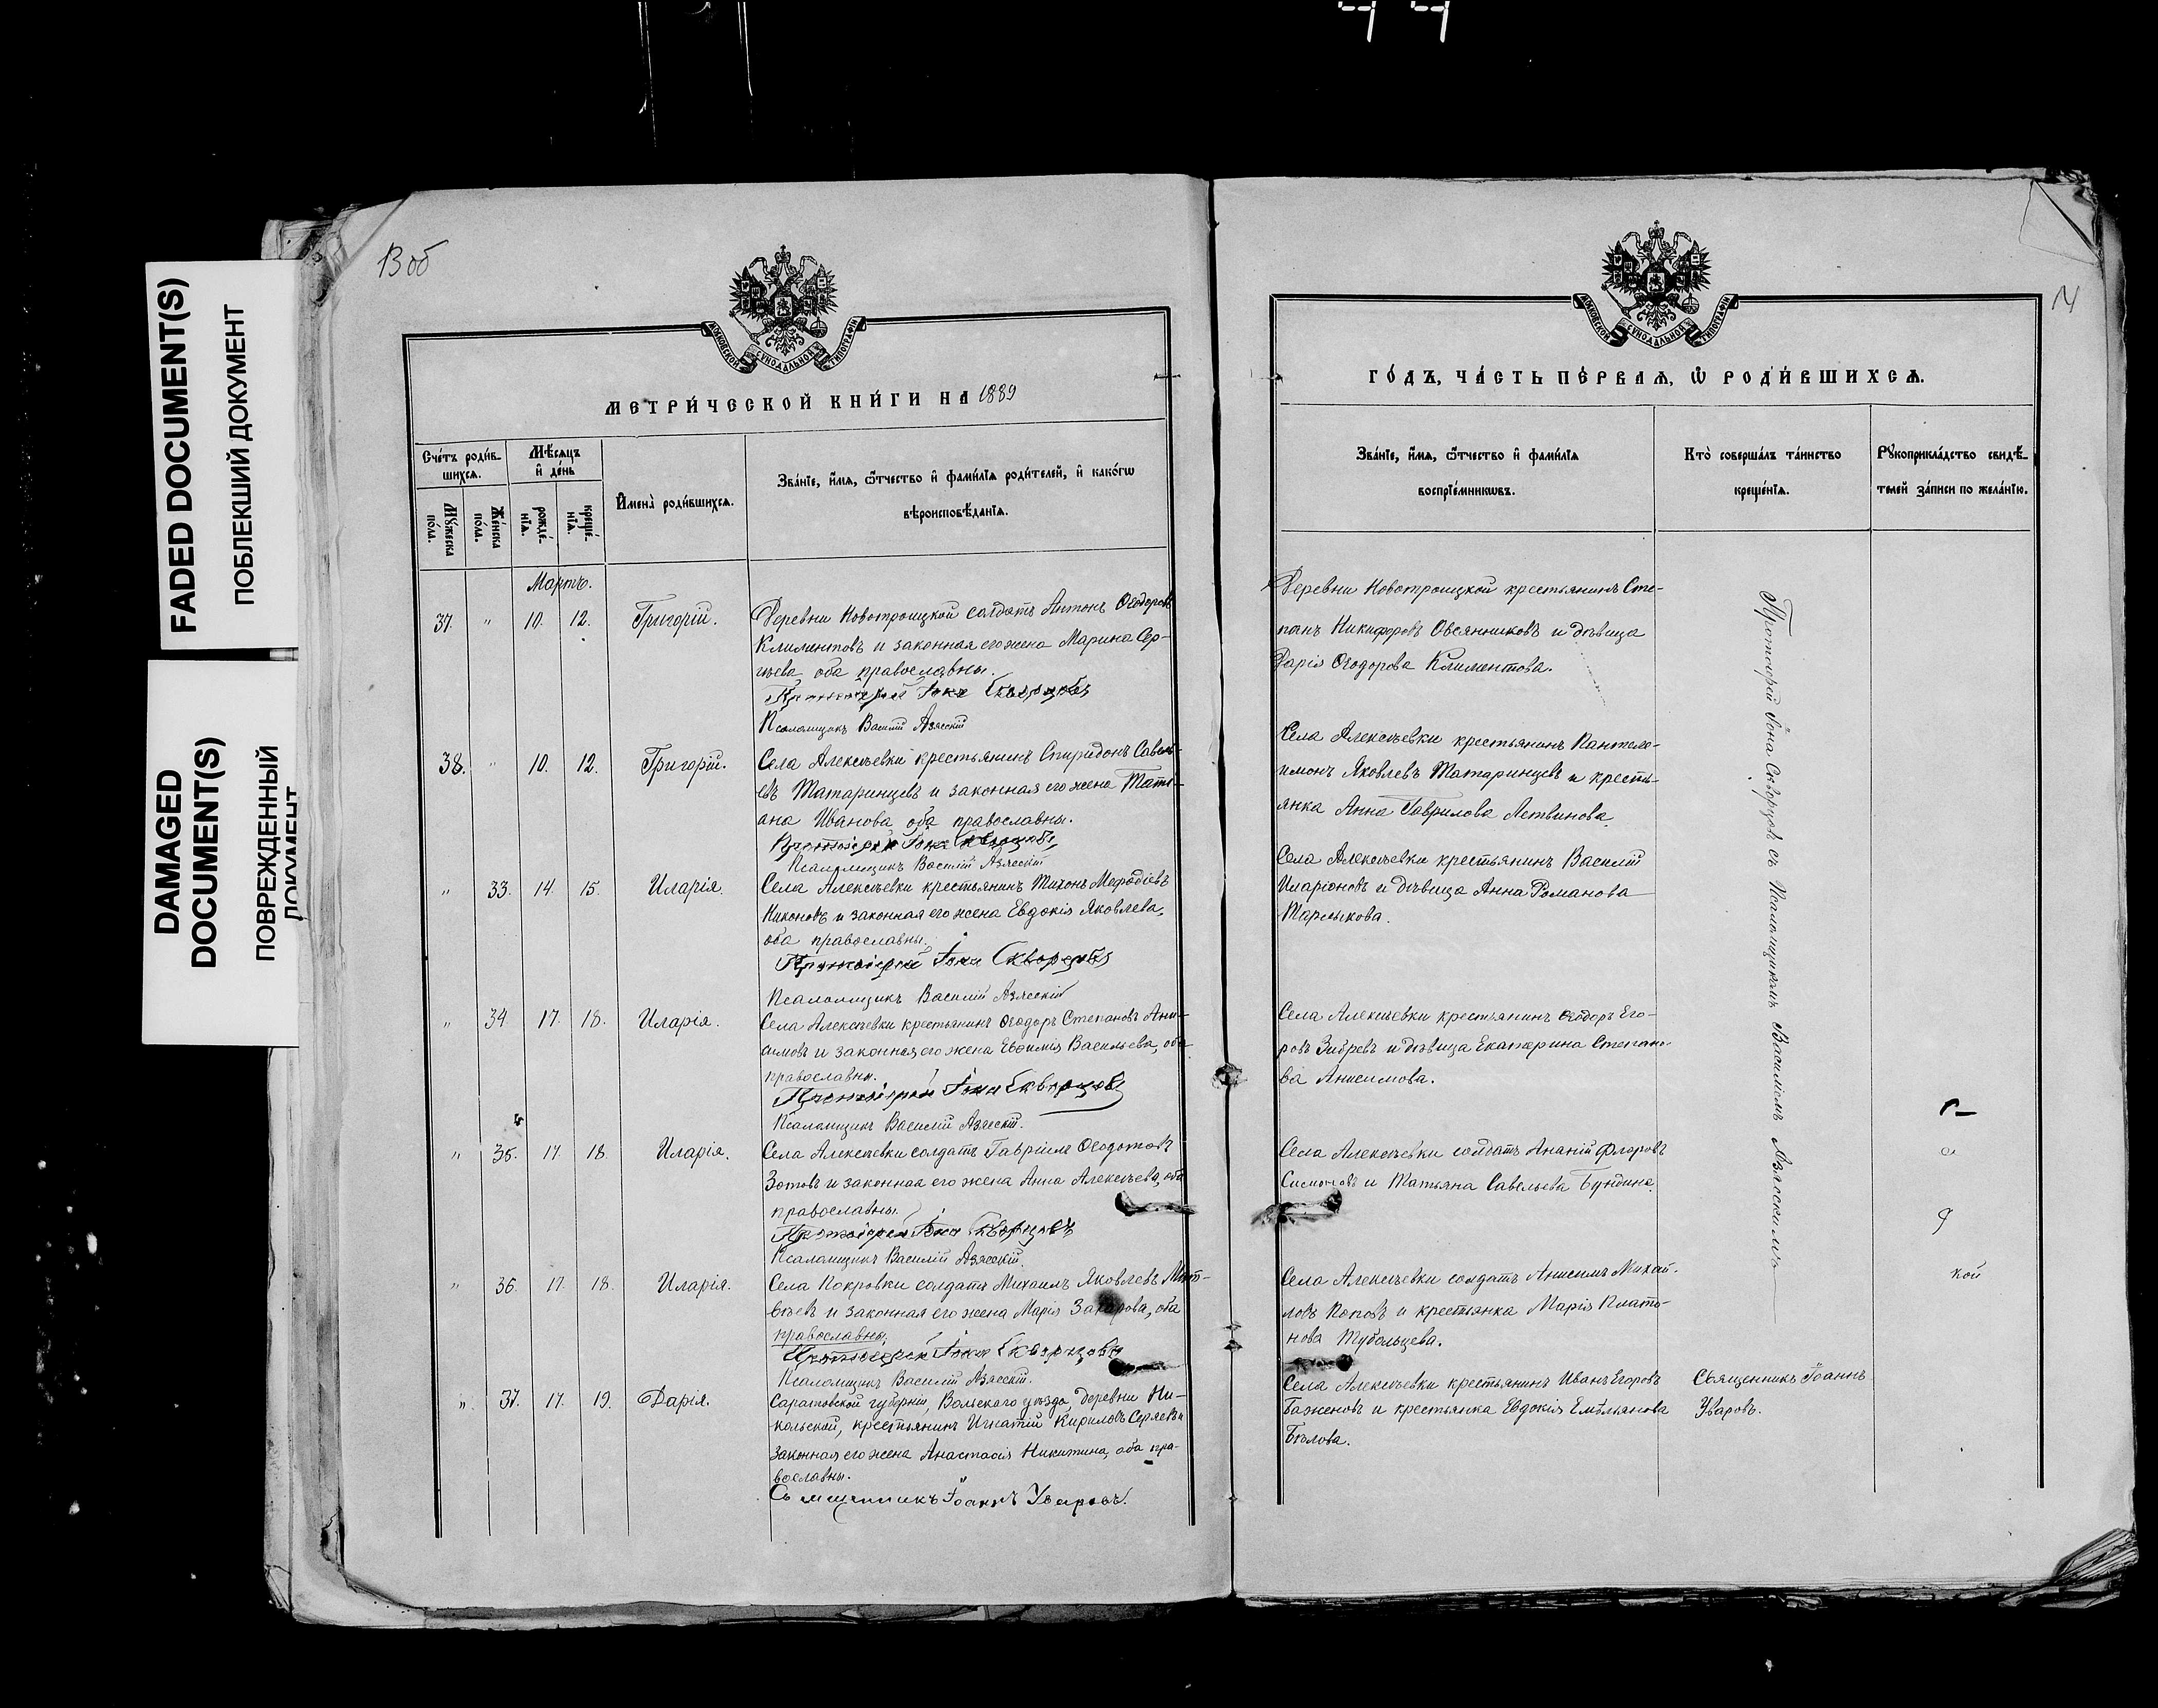 FADED DOCUMENT(S)
ПОБЛЕКШИЙ ДОКУМЕНТ
DAMAGED
DOCUMENT(S)
ПОВРЕЖДЕННЫЙ
ДОКУМЕНТ
13 об
МОСКОВСКОЙ СѴНОДАЛЬНОЙ ТИПОГРАФІИ
МЕТРИ́ЧЕСКОЙ КНИ́ГИ НА 1889
Сче́тъ роди́в-
шихсѧ.
Мꙋ́жеска
по́ла.
Же́нска
по́ла.
Мѣ́сѧцъ
и҆ де́нь
рожде́-
нїѧ.
креще́-
нїѧ.
И҆мена̀ роди́вшихсѧ.
Зва́нїе, и҆́мѧ, ѻ҆́тчество и҆ фами́лїѧ роди́телей, и҆ како́гѡ
вѣроисповѣ́данїѧ.
Мартъ.
37. " 10. 12. Григорій. Деревни Новотроицкой солдатъ Антонъ Ѳеодоровъ
Климентовъ и законная его жена Марина Сер-
гѣева, оба православны.
Протоіерей Іона Скворцовъ
Псаломщикъ Василій Азясскій
38. " 10. 12. Григорій. Села Алексѣевки крестьянинъ Спиридонъ Савель-
евъ Татаринцевъ и законная его жена Тать-
ана Иванова, оба православны.
Протоіерей Іона Скворцовъ
Псаломщикъ Василій Азясскій
" 33. 14. 15. Иларія. Села Алексѣевки крестьянинъ Тихонъ Меѳодіевъ
Никоновъ и законная его жена Евдокія Яковлева,
оба православны.
Протоіерей Іона Скворцовъ
Псаломщикъ Василій Азясскій
" 34. 17. 18. Иларія. Села Алексѣевки крестьянинъ Ѳеодоръ Степановъ Ани-
симовъ и законная его жена Евѳимія Васильева, оба
православны.
Протоіерей Іона Скворцовъ
Псаломщикъ Василій Азясскій.
" 35. 17. 18. Иларія. Села Алексѣевки солдатъ Гавріилъ Ѳеодотовъ
Зотовъ и законная его жена Анна Алексѣева, оба
православны.
Протоіерей Іона Скворцовъ
Псаломщикъ Василій Азясскій.
" 36. 17. 18. Иларія. Села Покровки солдатъ Михаилъ Яковлевъ Мат-
вѣевъ и законная его жена Марія Захарова, оба
православны.
Протоіерей Іона Скворцовъ
Псаломщикъ Василій Азясскій.
" 37. 17. 19. Дарія. Саратовской губерніи, Вольскаго уѣзда, деревни Ни-
кольской, крестьянинъ Игнатій Кириловъ и
законная его жена Анастасія Никитина, оба пра-
вославны.
Священникъ Іоаннъ Уваровъ.
14
МОСКОВСКОЙ СѴНОДАЛЬНОЙ ТИПОГРАФІИ
ГО́ДЪ, ЧА́СТЬ ПЕ́РВАѦ, Ѡ҆ РОДИ́ВШИХСѦ.
Зва́нїе, и҆́мѧ, ѻ҆́тчество и҆ фами́лїѧ
воспрїе́мникѡвъ.
Кто̀ соверша́лъ та́инство
креще́нїѧ.
Рꙋкоприкла́дство свидѣ́-
телей за́писи по жела́нїю.
Деревни Новотроицкой крестьянинъ Сте-
панъ Никифоровъ Овсянниковъ и дѣвица
Дарія Ѳеодорова Климентова.
Села Алексѣевки крестьянинъ Пантеле-
имонъ Яковлевъ Татаринцевъ и кресть-
янка Анна Гаврилова Летвинова.
Села Алексѣевки крестьянинъ Василій
Иларіоновъ и дѣвица Анна Романова
Села Алексѣевки крестьянинъ Ѳеодоръ Его-
ровъ Зибревъ и дѣвица Екатерина Степано-
ва Анисимова.
Села Алексѣевки солдатъ Ананій Флоровъ
Симоновъ и Татьяна Савельева Бундина.
Села Алексѣевки солдатъ Анисимъ Михай-
ловъ Поповъ и крестьянка Марія Плато-
нова Тубольцева.
Села Алексѣевки крестьянинъ Иванъ Егоровъ
Баженовъ и крестьянка Евдокія Емельянова
Бѣлова.
Протоіерей Іона Скворцовъ съ Псаломщикомъ Василіемъ Азясскимъ
Священникъ Іоаннъ
Уваровъ.
кой